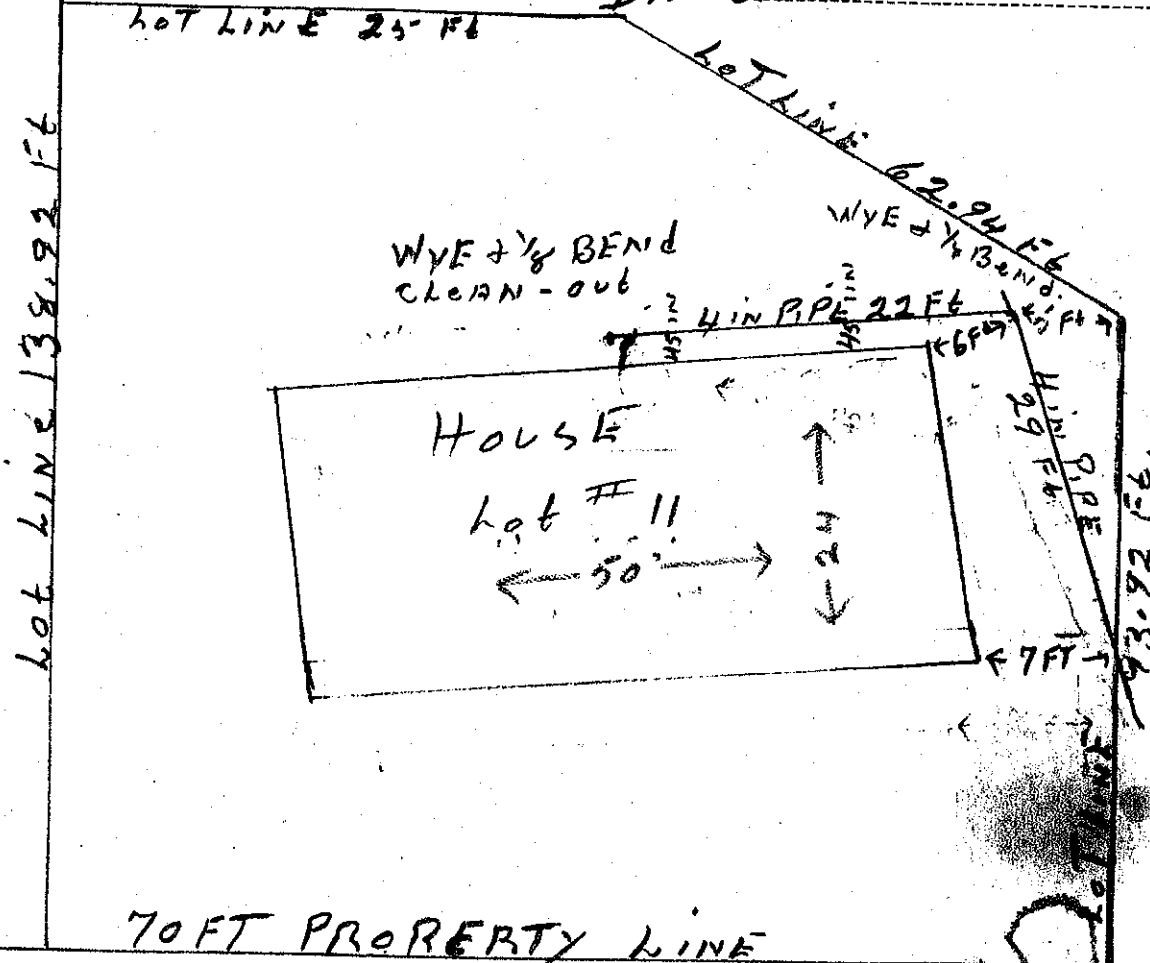 LOT LINE 25 Ft
LOT LINE 62.94 Ft
Lot LINE 138.92 Ft
WYE & 1/8 Bend
WYE & 1/8 BENd
CLEAN-OUT
4 IN PIPE 22 Ft
45 in
45 in
6 Ft
Ft
4 in PIPE
29 Ft
HOUSE
Lot # 11
50'
24
7 FT
93.92 Ft.
LOT LINE
70 FT PROPERTY LINE